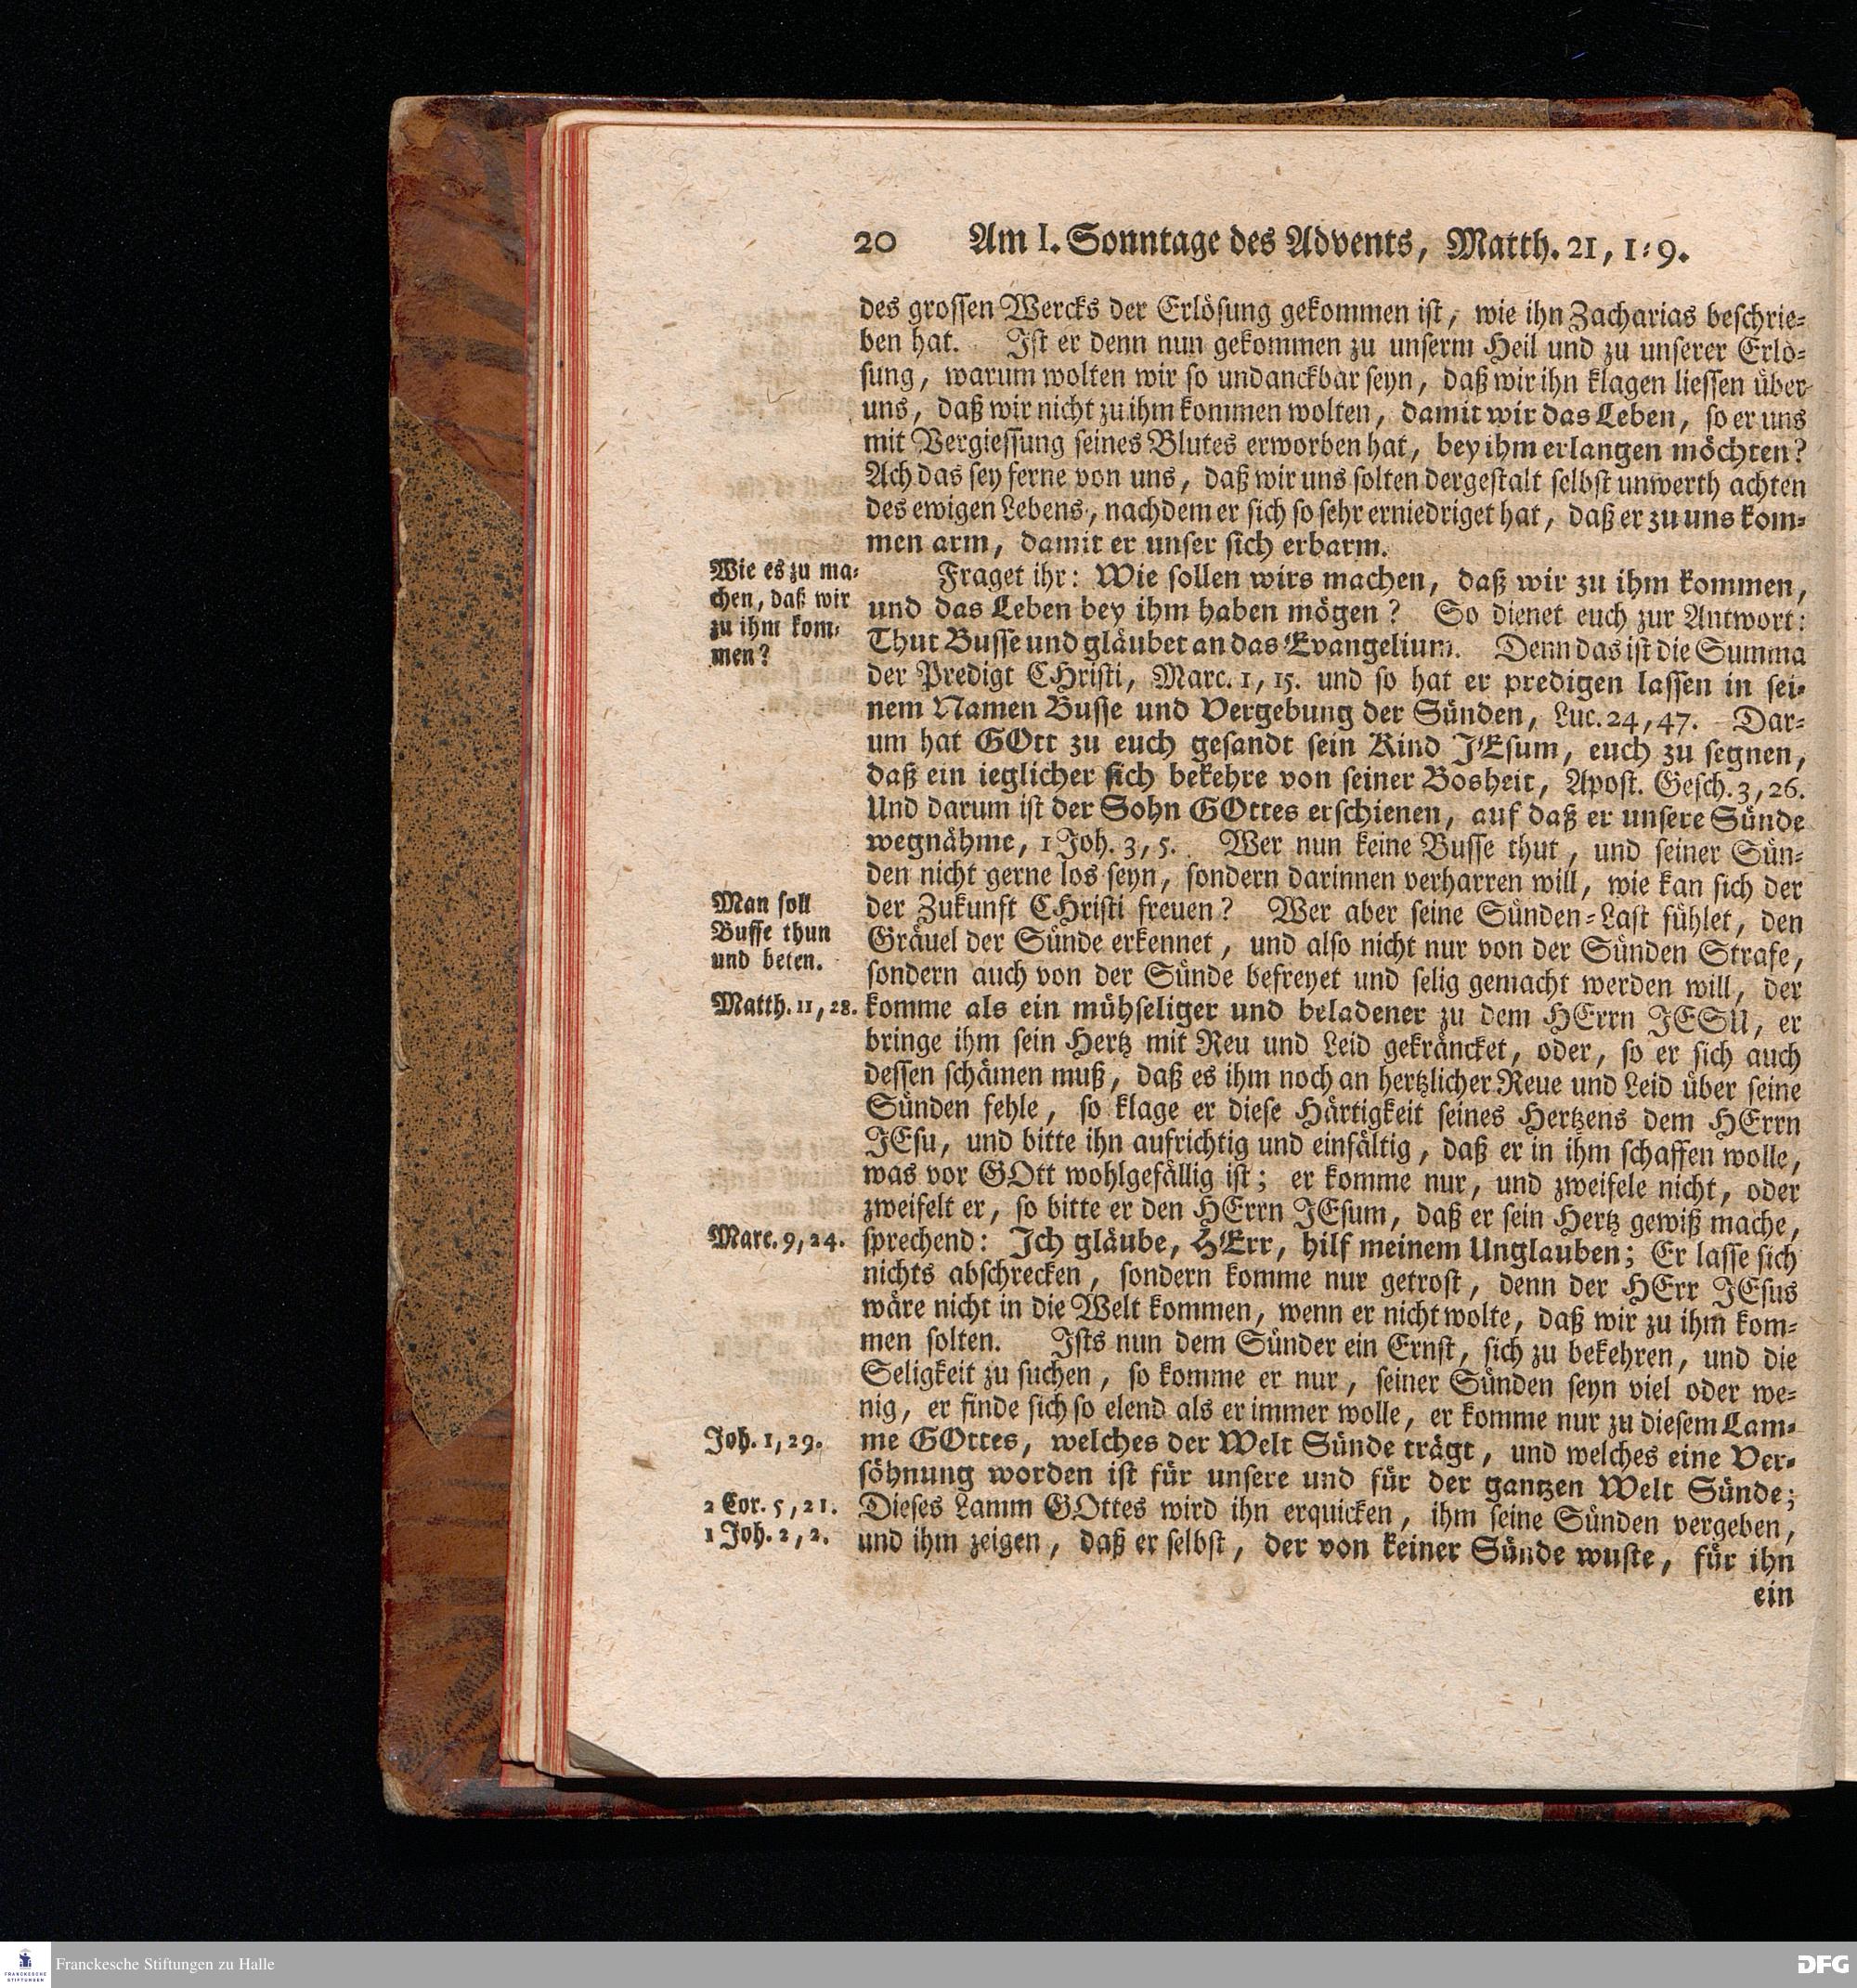 20 Am I. Sonntage des Advents, Matth. 21, 1-9.
des grossen Wercks der Erlösung gekommen ist, wie ihn Zacharias beschrie-
ben hat. Ist er denn nun gekommen zu unserm Heil und zu unserer Erlö-
sung, warum wolten wir so undanckbar seyn, daß wir ihn klagen liessen über
uns, daß wir nicht zu ihm kommen wolten, damit wir das Leben, so er uns
mit Vergiessung seines Blutes erworben hat, bey ihm erlangen möchten?
Ach das sey ferne von uns, daß wir uns solten dergestalt selbst unwerth achten
des ewigen Lebens, nachdem er sich so sehr erniedriget hat, daß er zu uns kom-
men arm, damit er unser sich erbarm.
Wie es zu ma-
chen, daß wir
zu ihm kom-
men?
Fraget ihr: Wie sollen wirs machen, daß wir zu ihm kommen,
und das Leben bey ihm haben mögen? So dienet euch zur Antwort:
Thut Busse und gläubet an das Evangelium. Denn das ist die Summa
der Predigt CHristi, Marc. 1, 15. und so hat er predigen lassen in sei-
nem Namen Busse und Vergebung der Sünden, Luc. 24, 47. Dar-
um hat GOtt zu euch gesandt sein Kind JEsum, euch zu segnen,
daß ein ieglicher sich bekehre von seiner Bosheit, Apost. Gesch. 3, 26.
Und darum ist der Sohn GOttes erschienen, auf daß er unsere Sünde
wegnähme, 1 Joh. 3, 5. Wer nun keine Busse thut, und seiner Sün-
den nicht gerne los seyn, sondern darinnen verharren will, wie kan sich der
Man soll
Busse thun
und beten.
der Zukunft CHristi freuen? Wer aber seine Sünden-Last fühlet, den
Gräuel der Sünde erkennet, und also nicht nur von der Sünden Strafe,
sondern auch von der Sünde befreyet und selig gemacht werden will, der
Matth. 11, 28.
komme als ein mühseliger und beladener zu dem HErrn JESU, er
bringe ihm sein Hertz mit Reu und Leid gekräncket, oder, so er sich auch
dessen schämen muß, daß es ihm noch an hertzlicher Reue und Leid über seine
Sünden fehle, so klage er diese Härtigkeit seines Hertzens dem HErrn
JEsu, und bitte ihn aufrichtig und einfältig, daß er in ihm schaffen wolle,
was vor GOtt wohlgefällig ist; er komme nur, und zweifele nicht, oder
zweifelt er, so bitte er den HErrn JEsum, daß er sein Hertz gewiß mache,
Marc. 9, 24.
sprechend: Ich gläube, HErr, hilf meinem Unglauben; Er lasse sich
nichts abschrecken, sondern komme nur getrost, denn der HErr JEsus
wäre nicht in die Welt kommen, wenn er nicht wolte, daß wir zu ihm kom-
men solten. Ists nun dem Sünder ein Ernst, sich zu bekehren, und die
Seligkeit zu suchen, so komme er nur, seiner Sünden seyn viel oder we-
nig, er finde sich so elend als er immer wolle, er komme nur zu diesem Lam-
Joh. 1, 29.
me GOttes, welches der Welt Sünde trägt, und welches eine Ver-
söhnung worden ist für unsere und für der gantzen Welt Sünde;
2 Cor. 5, 21.
Dieses Lamm GOttes wird ihn erquicken, ihm seine Sünden vergeben,
1 Joh. 2, 2.
und ihm zeigen, daß er selbst, der von keiner Sünde wuste, für ihn
ein
FRANCKESCHE
STIFTUNGEN
Franckesche Stiftungen zu Halle
DFG